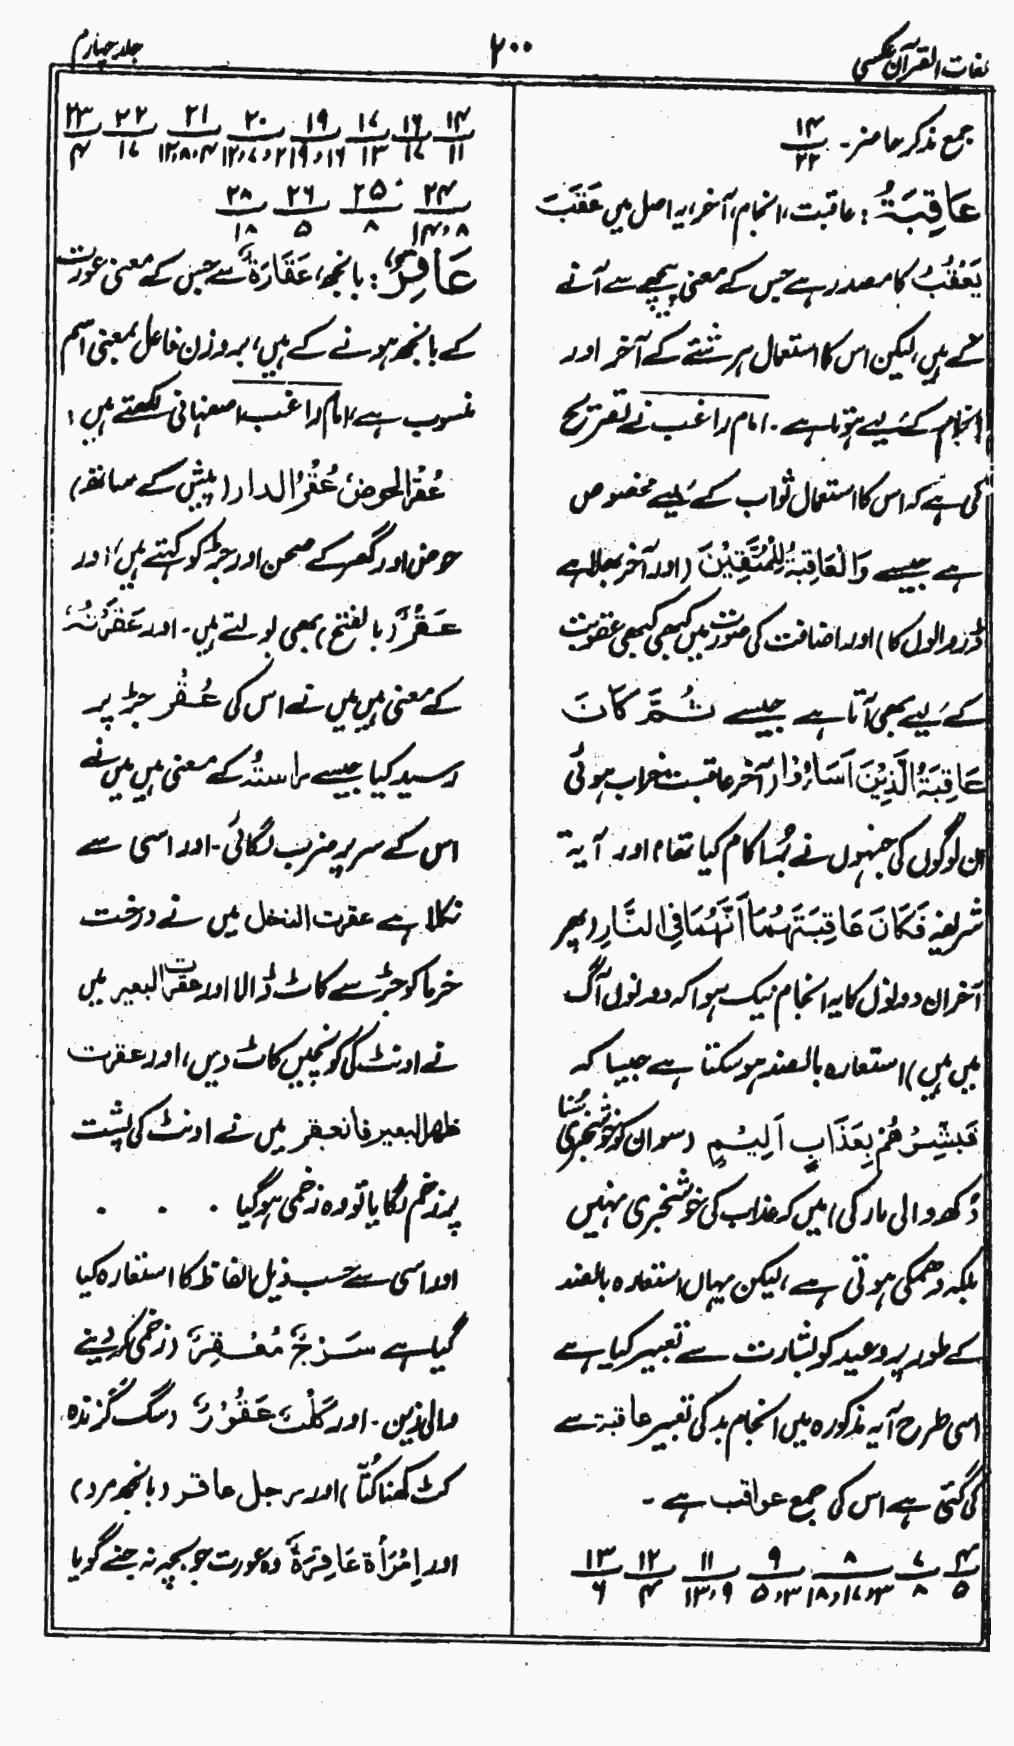 لغات القرآن عکسی
۲۰۰
جلد چہارم
جمع مذکر حاضر۔ ۱۴/۲۲
عَاقِبَةُ: عاقبت، انجام، آخر، یہ اصل میں عَقَبَ
یَعْقُبُ کا مصدر ہے جس کے معنی پیچھے سے آنے
کے ہیں، لیکن اس کا استعمال ہر شئے کے آخر اور
انجام کے لیے ہوتا ہے۔ امام راغب نے تصریح
کی ہے کہ اس کا استعمال ثواب کے لیے مخصوص
ہے جیسے وَالْعَاقِبَةُ لِلْمُتَّقِیْنَ (اور آخر بھلا ہے
ڈر والوں کا) اور اضافت کی صورت میں کبھی کبھی عقوبت
کے لیے بھی آتا ہے جیسے ثُمَّ کَانَ
عَاقِبَةُ الَّذِیْنَ اَسَاءُوْا (آخر عاقبت خراب ہوئی
ان لوگوں کی جنہوں نے بُرا کام کیا تھا) اور آیۃ
شریفہ فَکَانَ عَاقِبَتَهُمَا اَنَّهُمَا فِی النَّارِ (پھر
آخر ان دونوں کا یہ انجام نیک ہوا کہ دونوں آگ
میں ہیں) استعارہ بالضد ہو سکتا ہے جیسا کہ
فَبَشِّرْهُمْ بِعَذَابٍ اَلِیْمٍ (سو ان کو خوشخبری سنا
دکھ والی مار کی) میں کہ عذاب کی خوشخبری نہیں
بلکہ دھمکی ہوتی ہے، لیکن یہاں استعارہ بالضد
کے طور پر وعید کو بشارت سے تعبیر کیا ہے
اسی طرح آیہ مذکورہ میں انجام بد کی تعبیر عاقبۃ سے
کی گئی ہے اس کی جمع عواقب ہے۔
۴/۵ ۷/۸ ۸/۳،۱۷،۱۸ ۹/۳،۵ ۱۱/۹،۱۳ ۱۲/۴ ۱۳/۶
۱۴/۱۱ ۱۶/۱۷ ۱۷/۱۳ ۱۹/۱۶،۱۹ ۲۰/۲،۷،۱۲ ۲۱/۴،۸،۱۲ ۲۲/۱۷ ۲۳/۴
۲۴/۸،۱۴ ۲۵/۸ ۲۶/۵ ۲۸/۱۸
عَاقِرٌ: بانجھ، عَقَارَةٌ سے جس کے معنی عورت
کے بانجھ ہونے کے ہیں، بروزن فاعل بمعنی اسم
منسوب ہے، امام راغب اصفہانی لکھتے ہیں:
عُقْرُ الحوض عُقْرُ الدار (پیش کے ساتھ)
حوض اور گھر کے صحن اور جڑ کو کہتے ہیں، اور
عَقْرٌ (بالفتح) بھی بولتے ہیں۔ اور عَقَرْتُهٗ
کے معنی ہیں میں نے اس کی عُقْر جڑ پر
رسید کیا جیسے راستُہ کے معنی ہیں میں نے
اس کے سر پر ضرب لگائی۔ اور اسی سے
نکلا ہے عقرت النخل میں نے درخت
خرما کو جڑ سے کاٹ ڈالا اور عقرت البعیر میں
نے اونٹ کی کونچیں کاٹ دیں، اور عقرت
ظہر البعیر فانعقر میں نے اونٹ کی پشت
پر زخم لگایا تو وہ زخمی ہو گیا . . .
اور اسی سے حسب ذیل الفاظ کا استعارہ کیا
گیا ہے سَرْجٌ مُعْقِرٌ (زخمی کر دینے
والی زین۔ اور کَلْبٌ عَقُوْرٌ (سگ گزندہ
کٹ کھنا کُتّا) اور رجل عاقر (بانجھ مرد)
اور اِمْرَأۃ عَاقِرَةٌ وہ عورت جو بچہ نہ جنے گویا